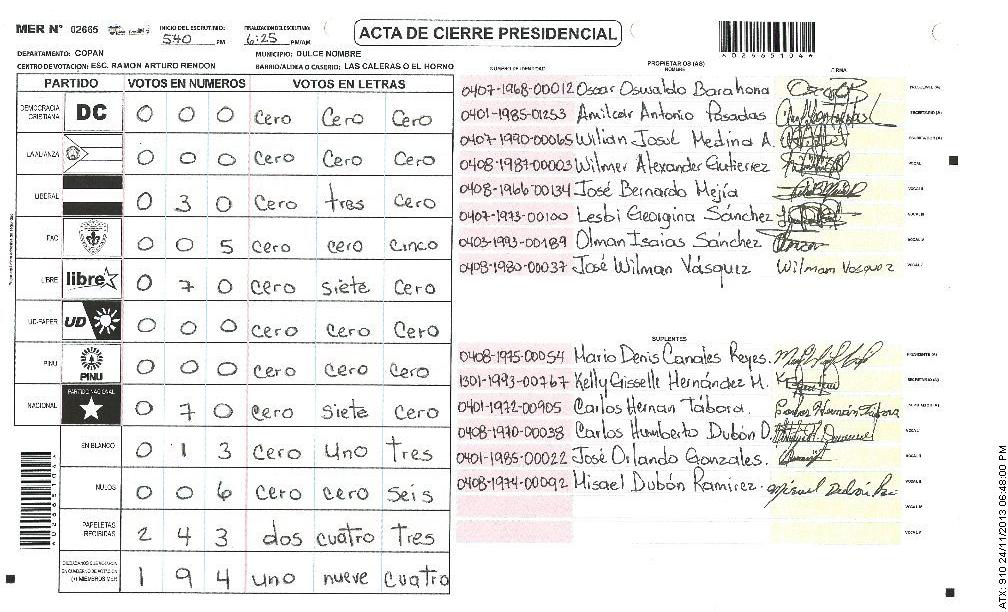 MER N° 02665 INICIO DEL ESCRUTINIO: 540 PM FINALIZACION DEL ESCRUTINIO: 6:25 PM/AM
ACTA DE CIERRE PRESIDENCIAL
DEPARTAMENTO: COPAN MUNICIPIO: DULCE NOMBRE
CENTRO DE VOTACION: ESC. RAMON ARTURO RENDON BARRIO/ALDEA O CASERIO: LAS CALERAS O EL HORNO
PARTIDO VOTOS EN NUMEROS VOTOS EN LETRAS
DEMOCRACIA CRISTIANA DC 0 0 0 Cero Cero Cero
LA ALIANZA 0 0 0 Cero Cero Cero
LIBERAL 0 3 0 Cero tres Cero
FAC 0 0 5 Cero cero Cinco
LIBRE libre 0 7 0 Cero siete Cero
UD-FAPER UD 0 0 0 Cero Cero Cero
PINU PINU 0 0 0 Cero Cero Cero
NACIONAL PARTIDO NACIONAL 0 7 0 Cero siete Cero
EN BLANCO 0 1 3 Cero Uno Tres
NULOS 0 0 6 Cero cero Seis
PAPELETAS RECIBIDAS 2 4 3 dos cuatro Tres
1 9 4 uno nueve cuatro
(+) MIEMBROS MER
A026651044
NUMERO DE IDENTIDAD PROPIETARIOS (AS) NOMBRE FIRMA
0407-1968-00012 Oscar Oswaldo Barahona PRESIDENTE (A)
0401-1985-01253 Amilcar Antonio Posadas SECRETARIO (A)
0407-1990-00065 Wilian José Medina A. ESCRUTADOR (A)
0408-1987-00003 Wilmer Alexander Gutierrez VOCAL I
0408-1966-00134 José Bernardo Mejía VOCAL II
0407-1973-00100 Lesbi Georgina Sánchez VOCAL III
0403-1993-00189 Olman Isaias Sánchez VOCAL IV
0408-1980-00037 José Wilman Vásquez Wilmam Vasquez VOCAL V
SUPLENTES
0408-1975-00054 Mario Denis Canales Reyes. PRESIDENTE (A)
1301-1993-00767 Kelly Gisselle Hernández M. SECRETARIO (A)
0401-1972-00905 Carlos Hernan Tábora. Carlos Hernán Tabora ESCRUTADOR (A)
0408-1970-00038 Carlos Humberto Dubón D. VOCAL I
0401-1985-00022 José Orlando Gonzales. VOCAL II
0408-1974-00092 Misael Dubón Ramirez. VOCAL III
VOCAL IV
VOCAL V
ATX: 910 24/11/2013 06:48:00 PM